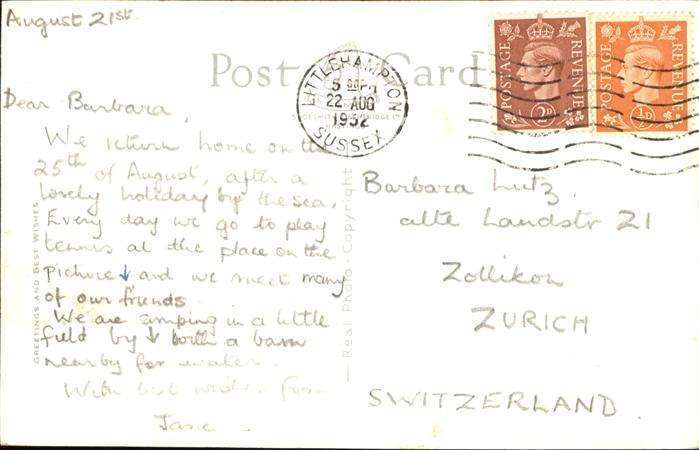 August 21st
Post Card
POSTAGE REVENUE
2D
POSTAGE REVENUE
½D
LITTLEHAMPTON
22 AUG
1952
SUSSEX
Dear Barbara,
We return home on the
25th of August, after a
lovely holiday by the sea.
Every day we go to play
tennis at the place on the
picture ↓ and we meet many
of our friends.
We are camping in a little
field by ↓ with a barn
nearby for water.
With best wishes from
Jane
GREETINGS AND BEST WISHES
Real Photo - Copyright
Barbara Lutz
alte Landstr 21
Zollikon
ZURICH
SWITZERLAND